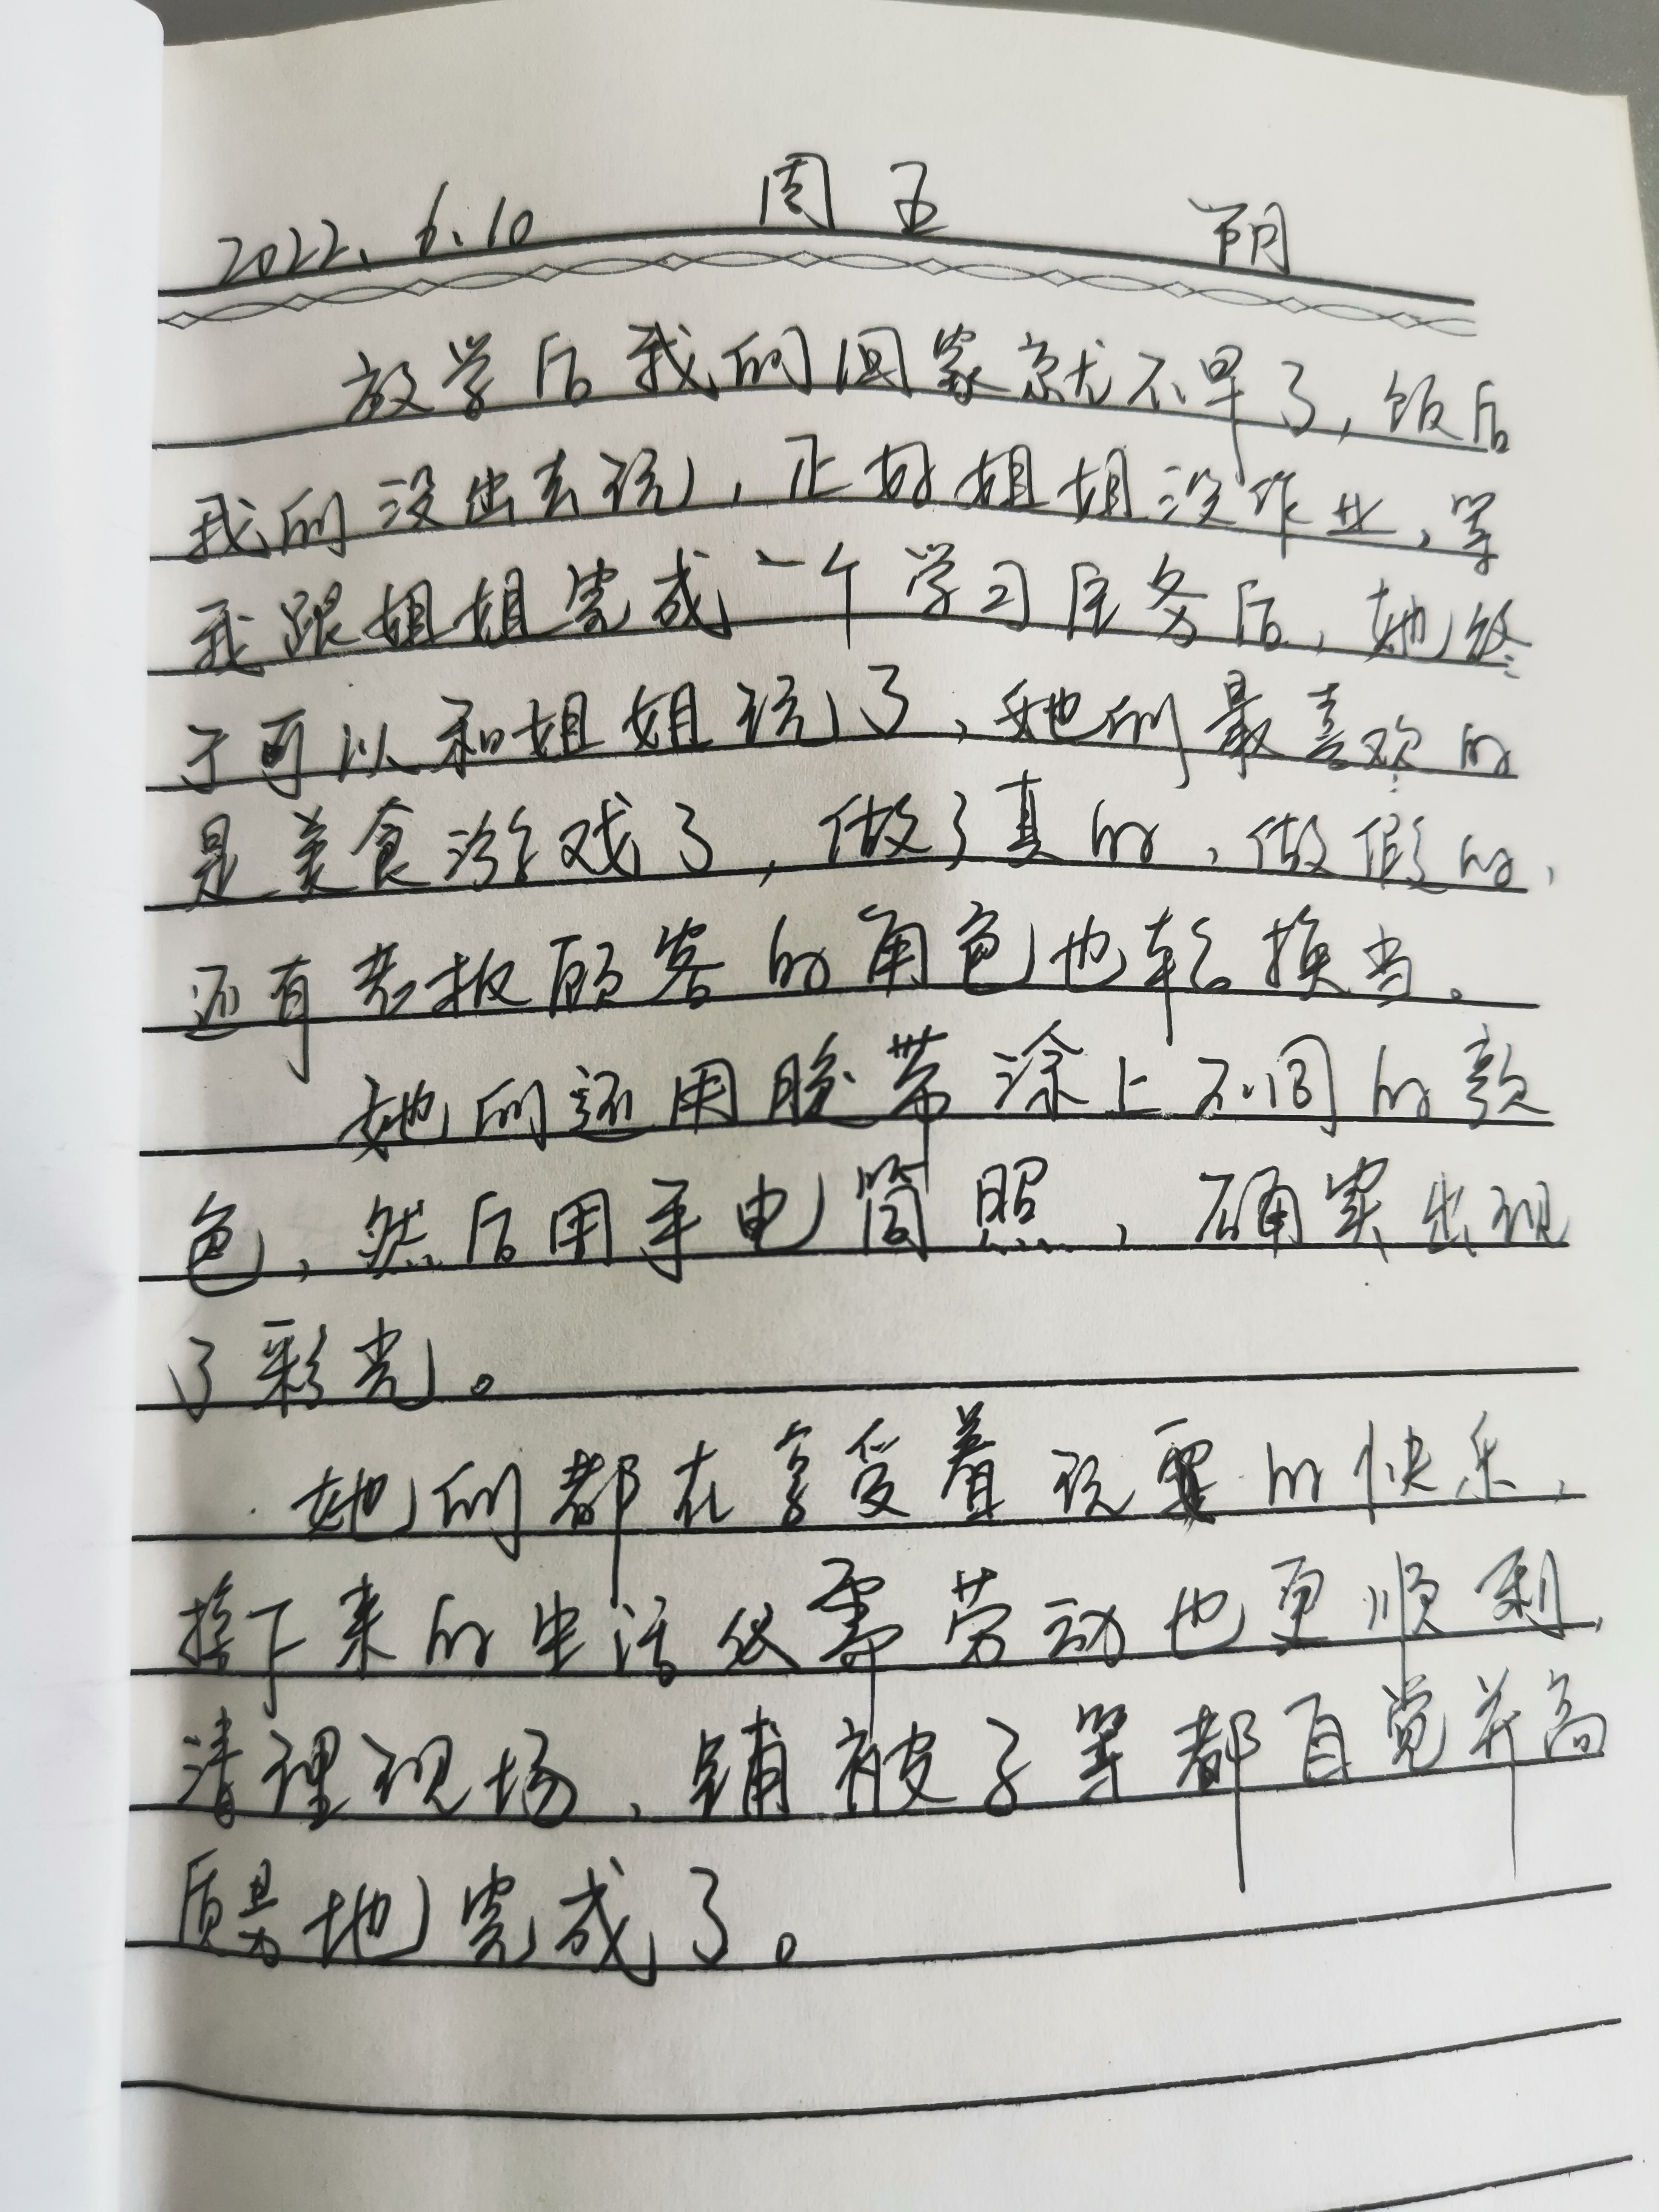 2022.6.10 周五 
放学后我们回家就不早了,饭后
我们没出去玩,正好姐姐没作业,等
我跟姐姐完成一个学习任务后,她终
于可以和姐姐玩了,她们最喜欢的
是美食游戏了,做了真的,做假的,
还有老板顾客的角色也轮换当。
她们还用胶带涂上不同的颜
色,然后用手电筒照,确实出现
了彩光。
她们都在享受着玩耍的快乐,
接下来的生活必需劳动也更顺利,
清理现场、铺被子等都自觉并高
质量地完成了。